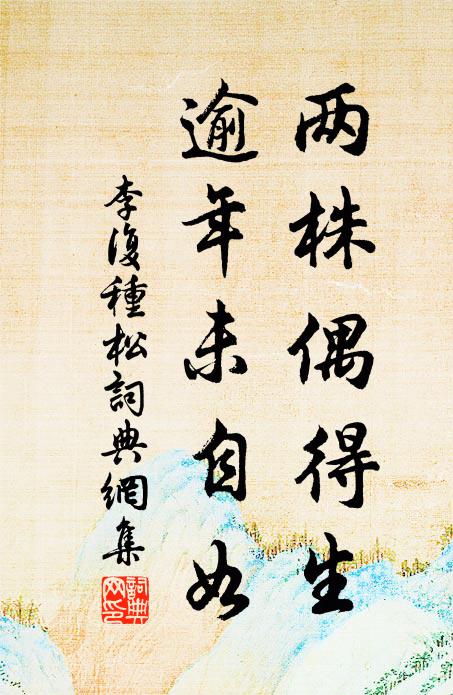 两株偶得生
逾年未自如
李復種松詞典網集
詞典网印